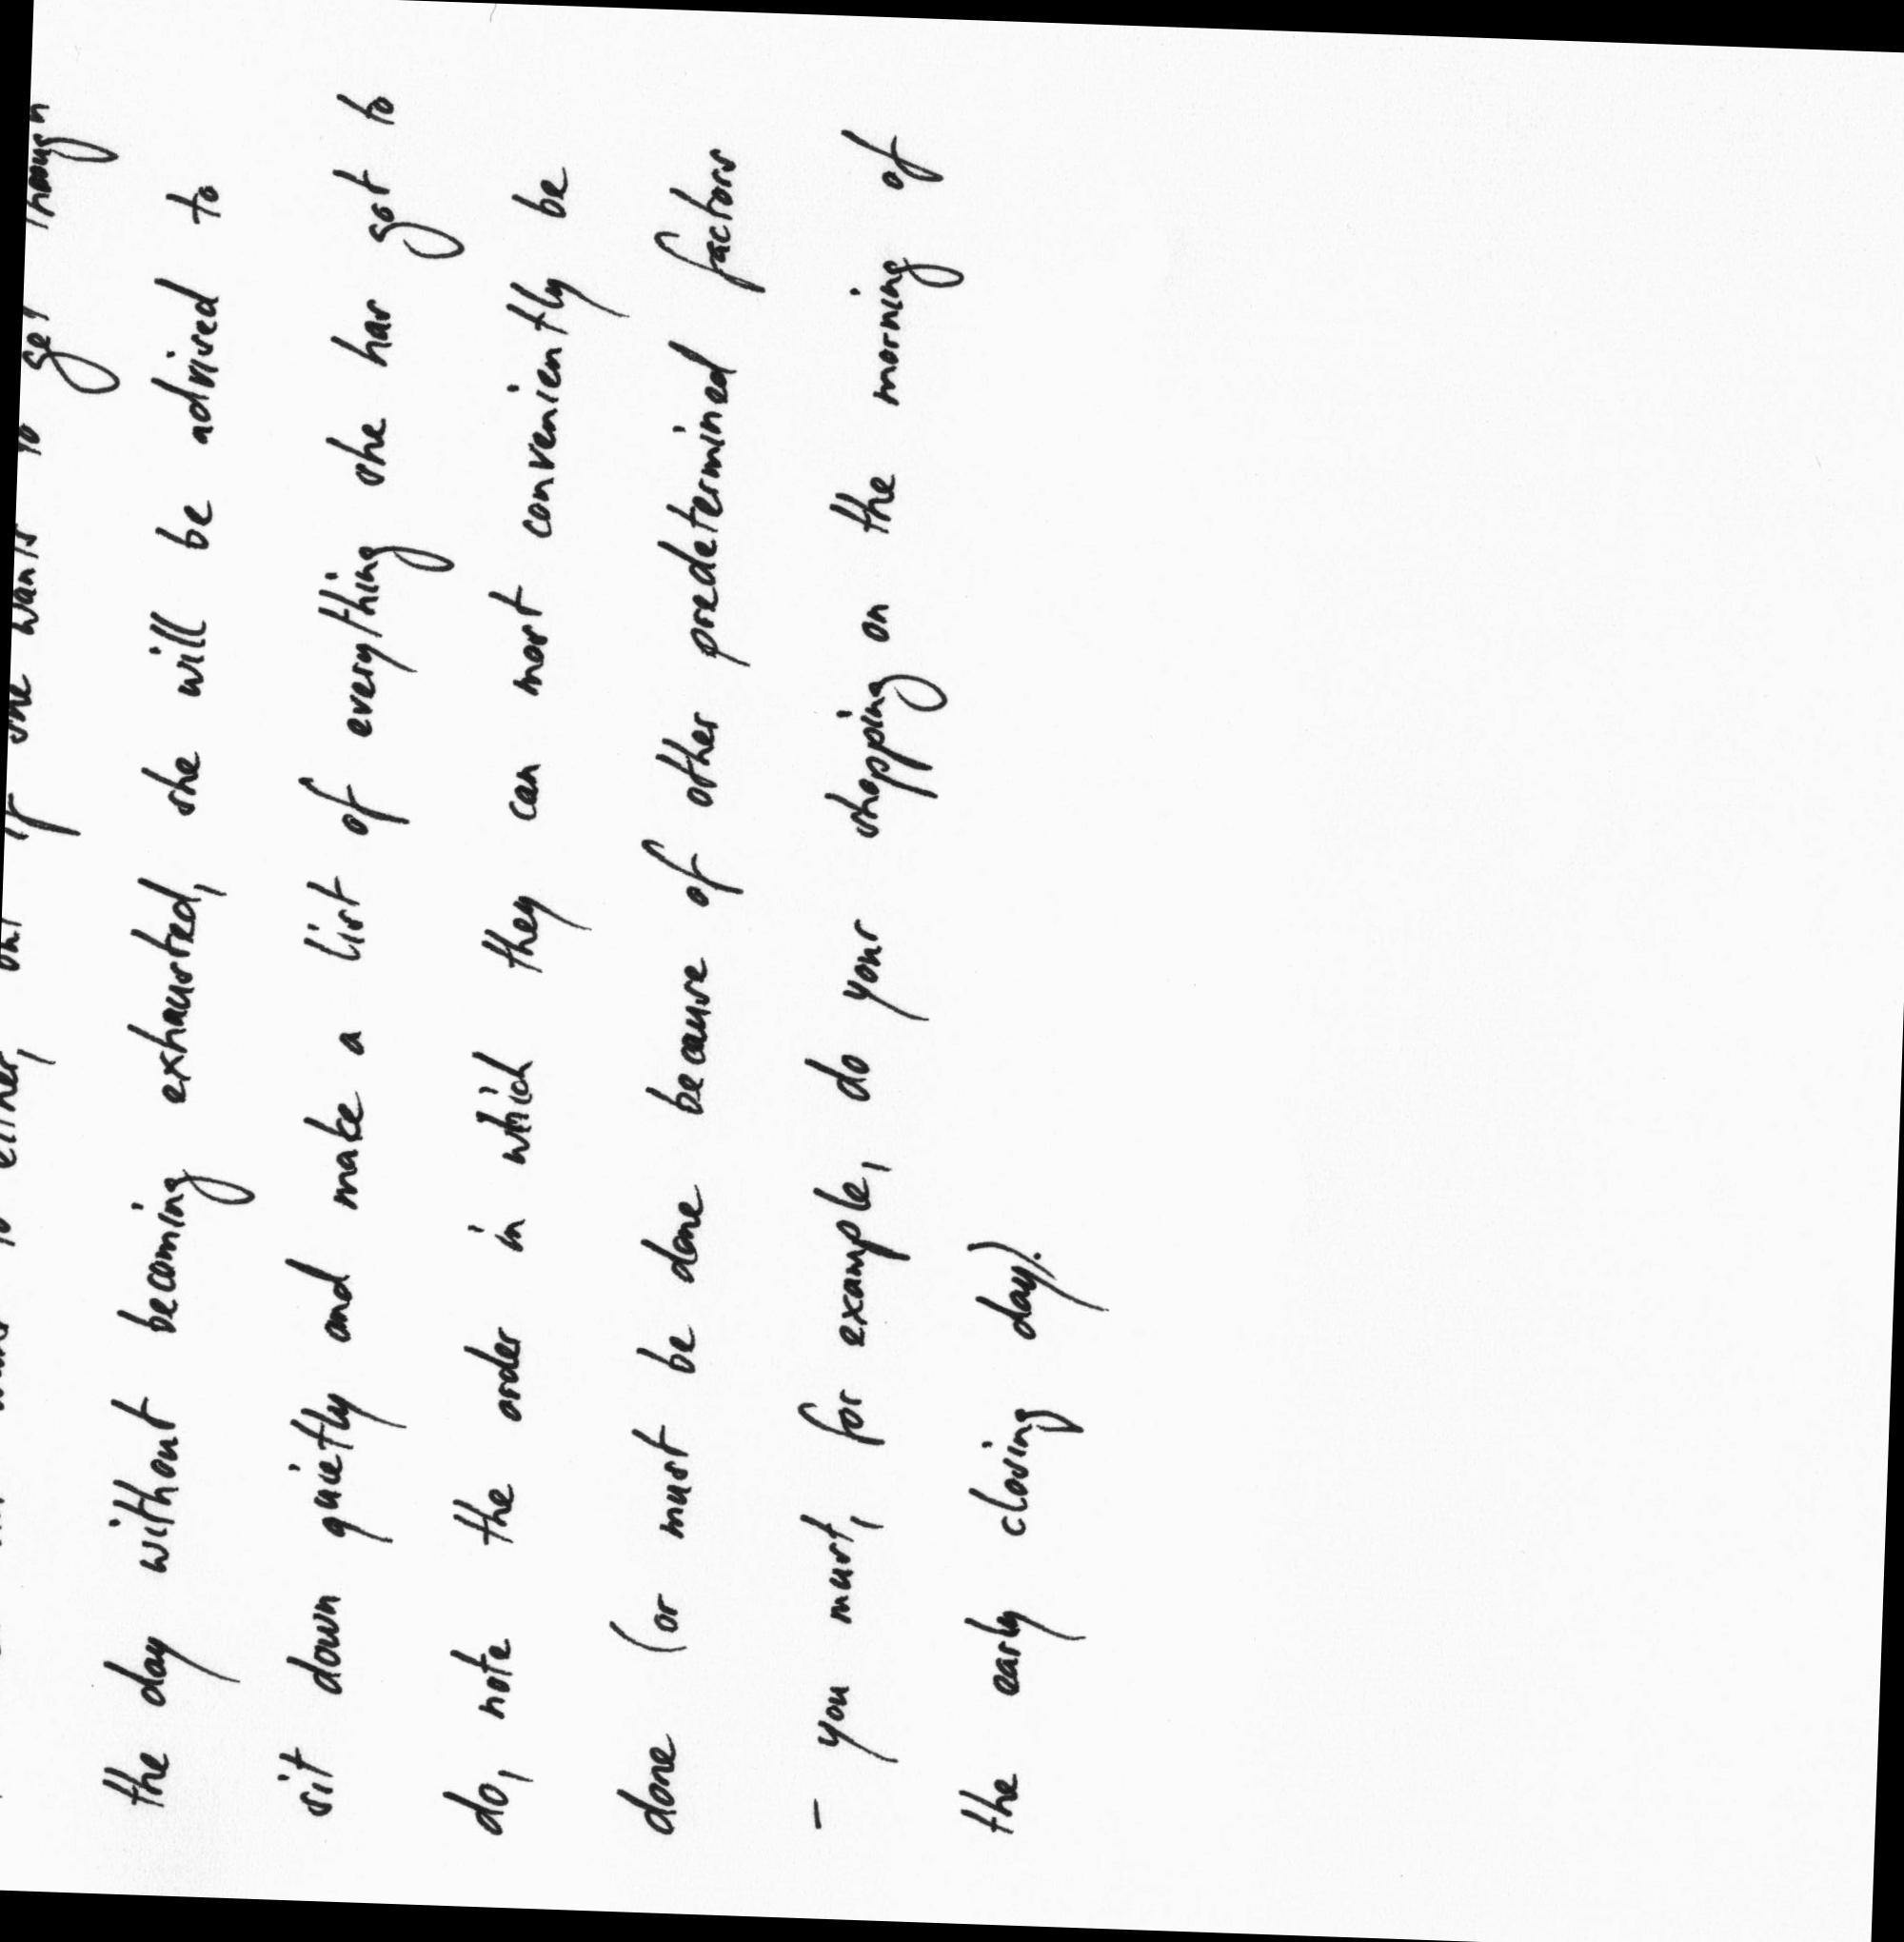 if she wants to get through
the day without becoming exhausted, she will be advised to
sit down quietly and make a list of everything she has got to
do, note the order in which they can most conveniently be
done (or must be done because of other predetermined factors
- you must, for example, do your shopping on the morning of
the early closing day).